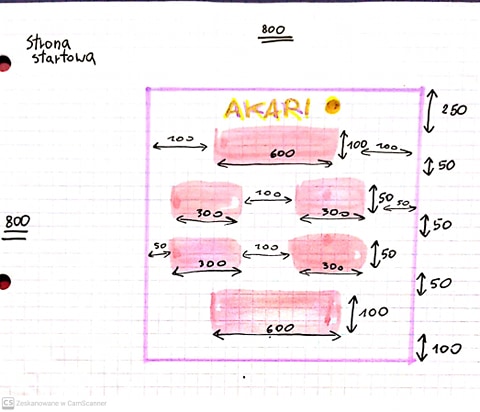 800
Strona
startowa
AKARI
250
100 600 100 100
50
100 50
300 300 50
800
50
50 100 50
300 300
50
600 100
100
CS Zeskanowane w CamScanner